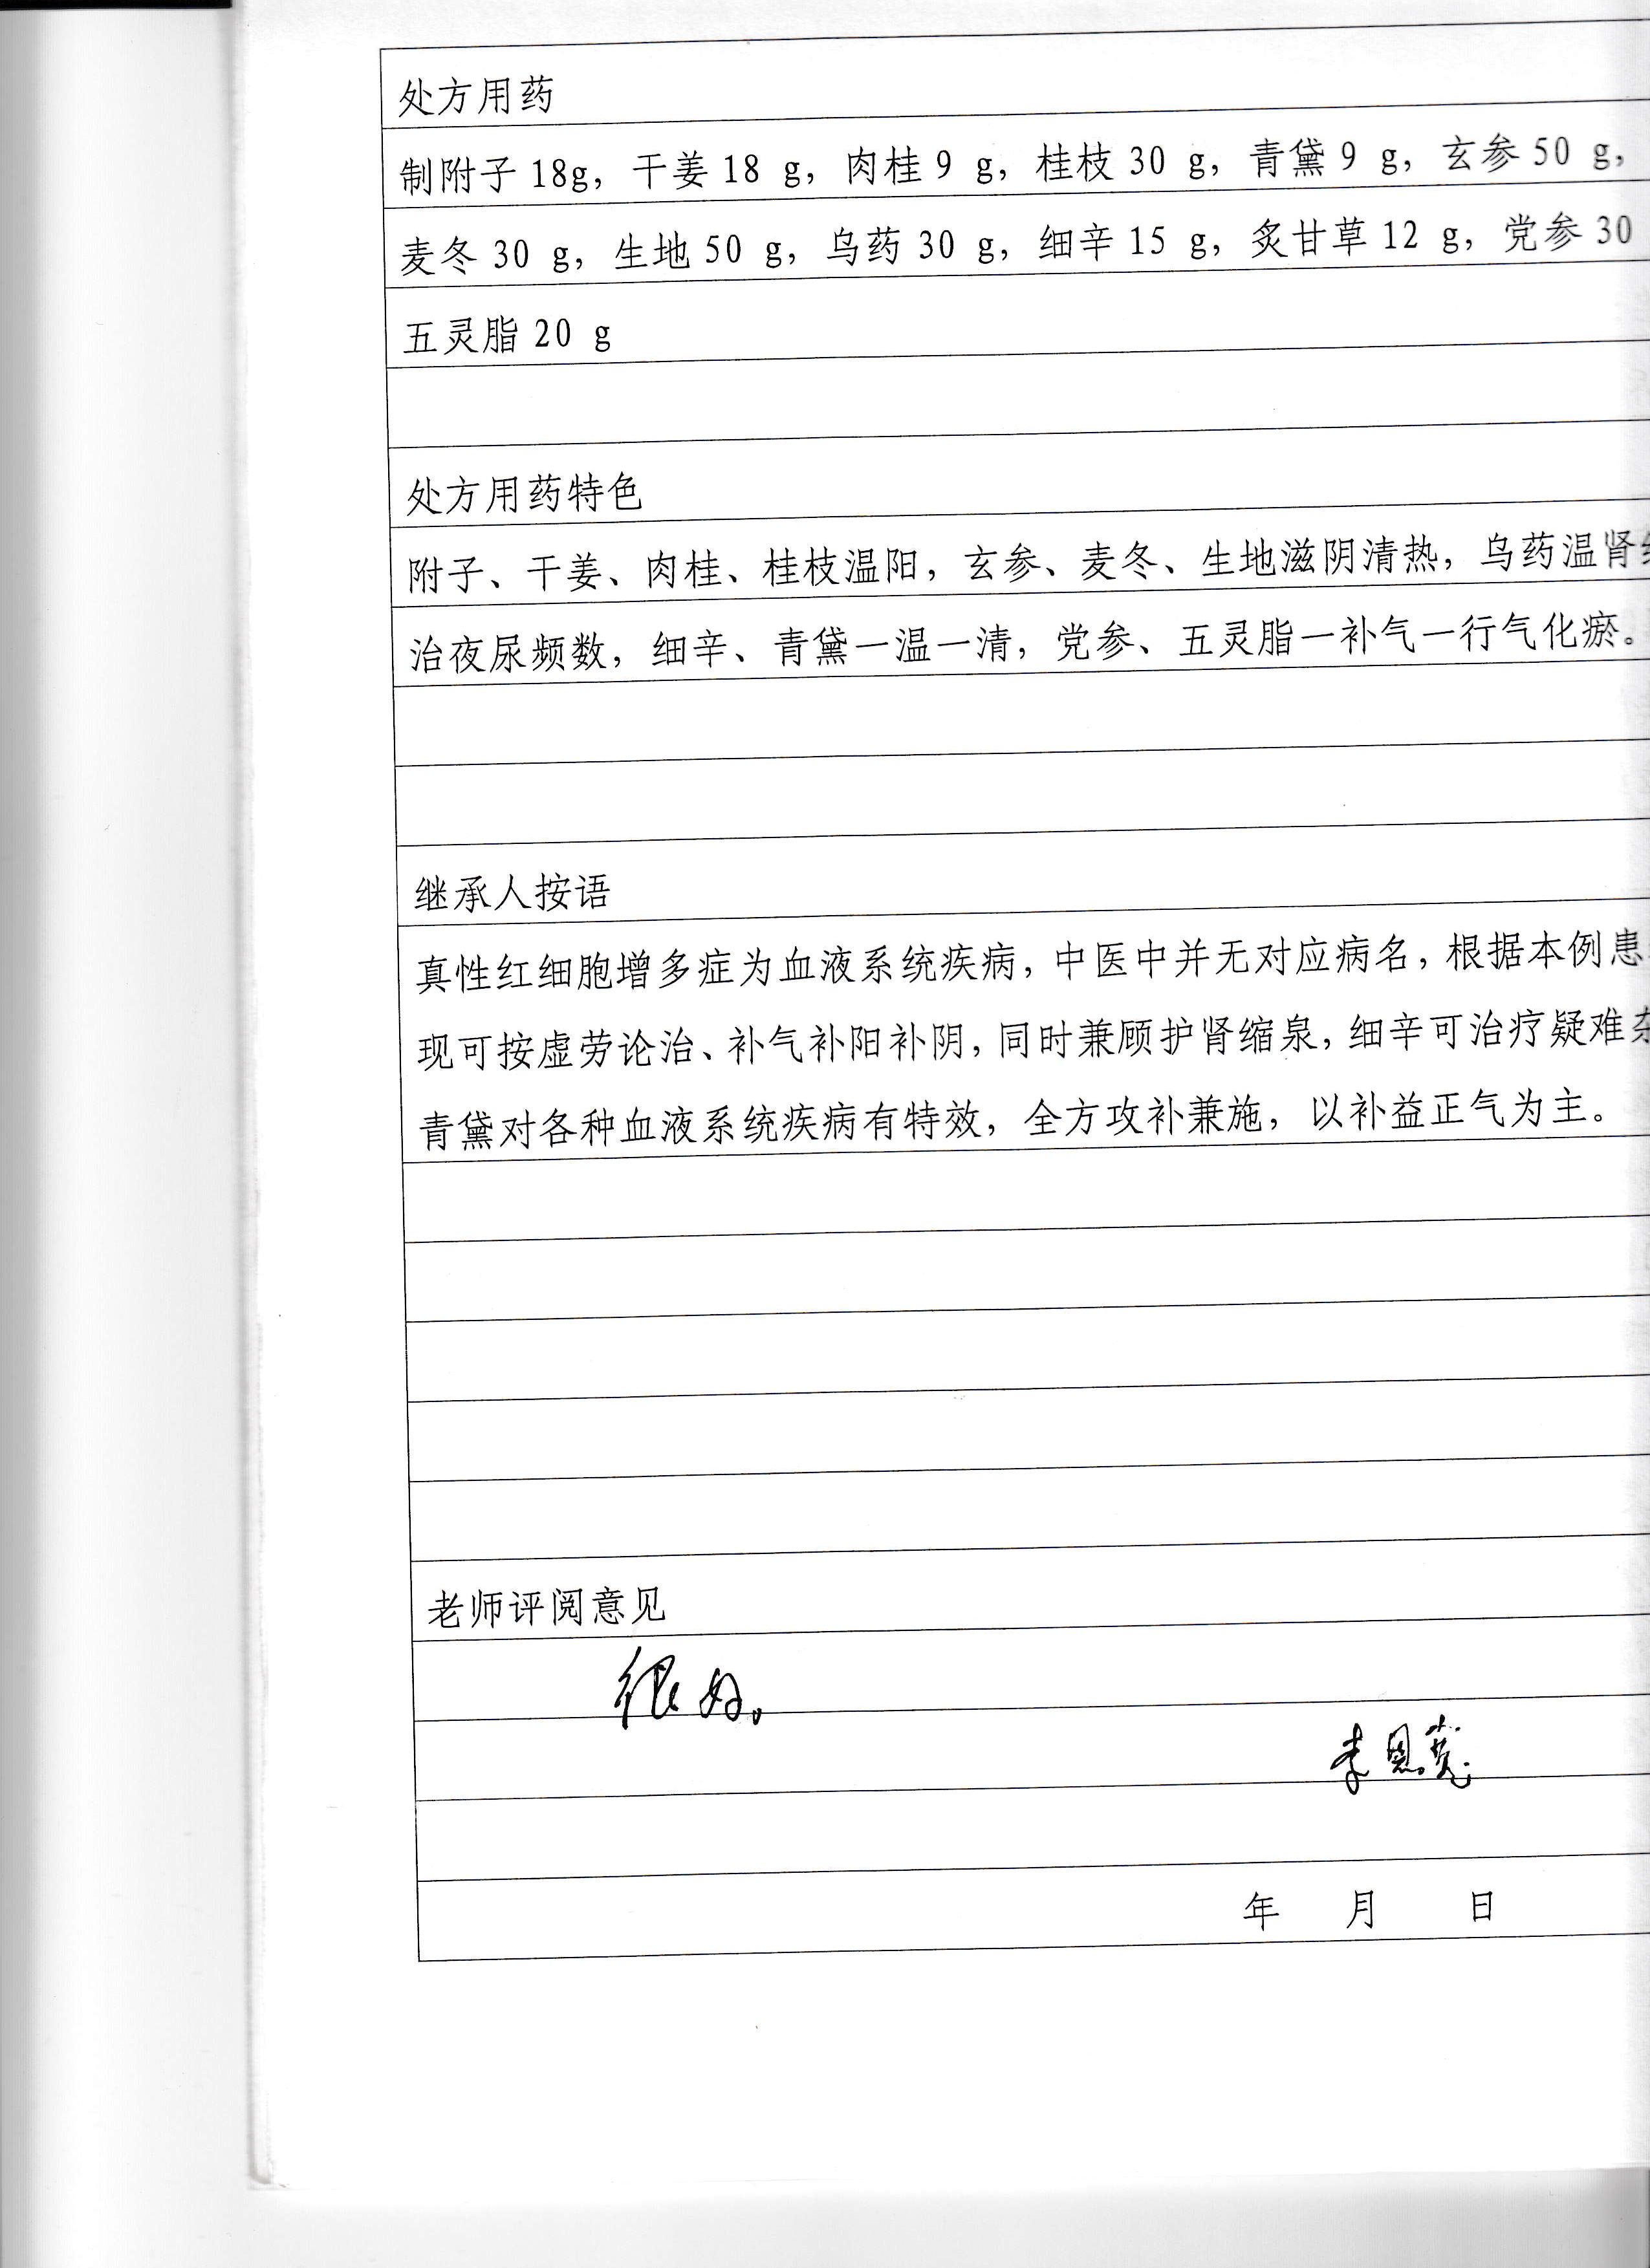 处方用药
制附子 18g，干姜 18 g，肉桂 9 g，桂枝 30 g，青黛 9 g，玄参 50 g，
麦冬 30 g，生地 50 g，乌药 30 g，细辛 15 g，炙甘草 12 g，党参 30
五灵脂 20 g
处方用药特色
附子、干姜、肉桂、桂枝温阳，玄参、麦冬、生地滋阴清热，乌药温肾
治夜尿频数，细辛、青黛一温一清，党参、五灵脂一补气一行气化瘀。
继承人按语
真性红细胞增多症为血液系统疾病，中医中并无对应病名，根据本例患
现可按虚劳论治、补气补阳补阴，同时兼顾护肾缩泉，细辛可治疗疑难
青黛对各种血液系统疾病有特效，全方攻补兼施，以补益正气为主。
老师评阅意见
很好。
李恩宽
年 月 日